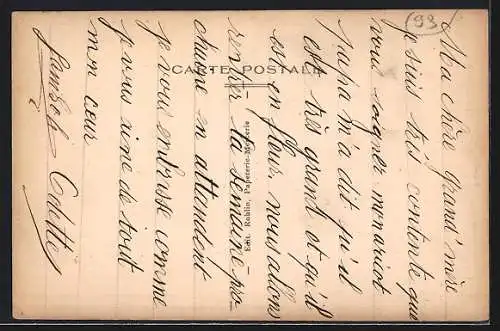 (93)
CARTE POSTALE
Edit. Roblin, Papeterie-Mercerie
Ma chère grand'mère
je suis très contente que
vous soignez mon aricot
papa m'a dit qu'il
est très grand et qu'il
est en fleur, nous allons
rentrer la semaine pro-
chaine en attendent
je vous embrasse comme
je vous aime de tout
mon cœur
Odette